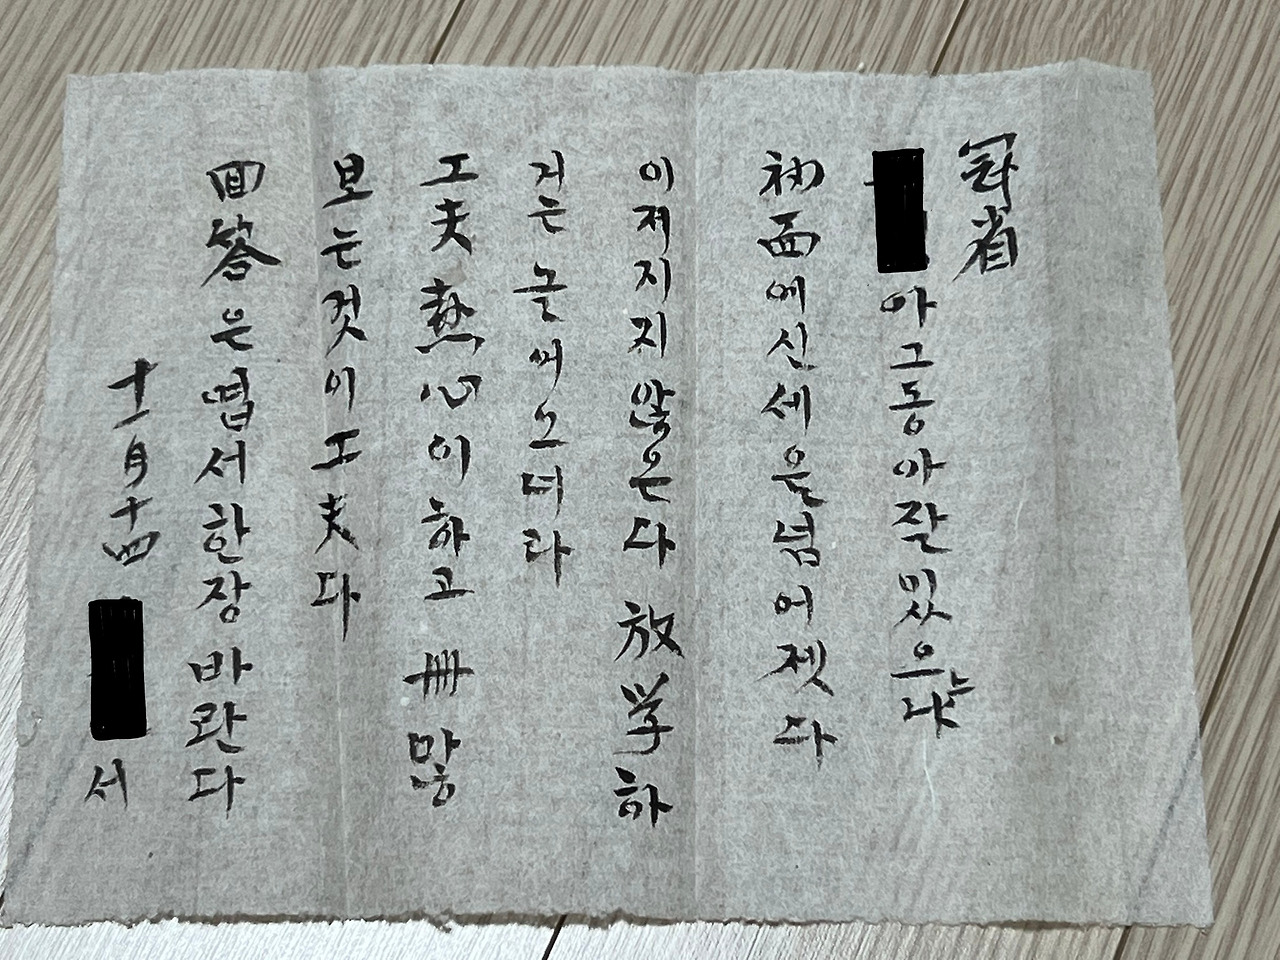 冠省
아그동아잘있으냐
初面에신세을넘어젯다
이져지지않은다放学하
거든놀너오너라
工夫熱心이하고冊많
보는것이工夫다
回答은엽서한장바란다
十一月十四 서